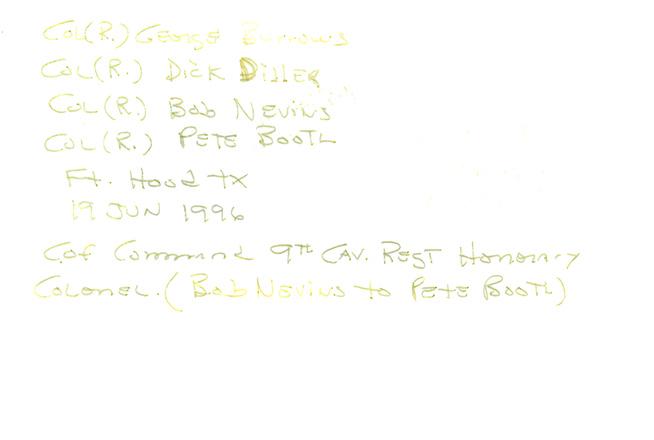 COL(R.) GEORGE BURROWS
COL(R.) DICK DILLER
COL(R.) BOB NEVINS
COL(R.) PETE BOOTH
Ft. Hood TX
19 JUN 1996
C of Command 9TH CAV. REGT Honorary
COLONEL. (BOB NEVINS to PETE BOOTH)